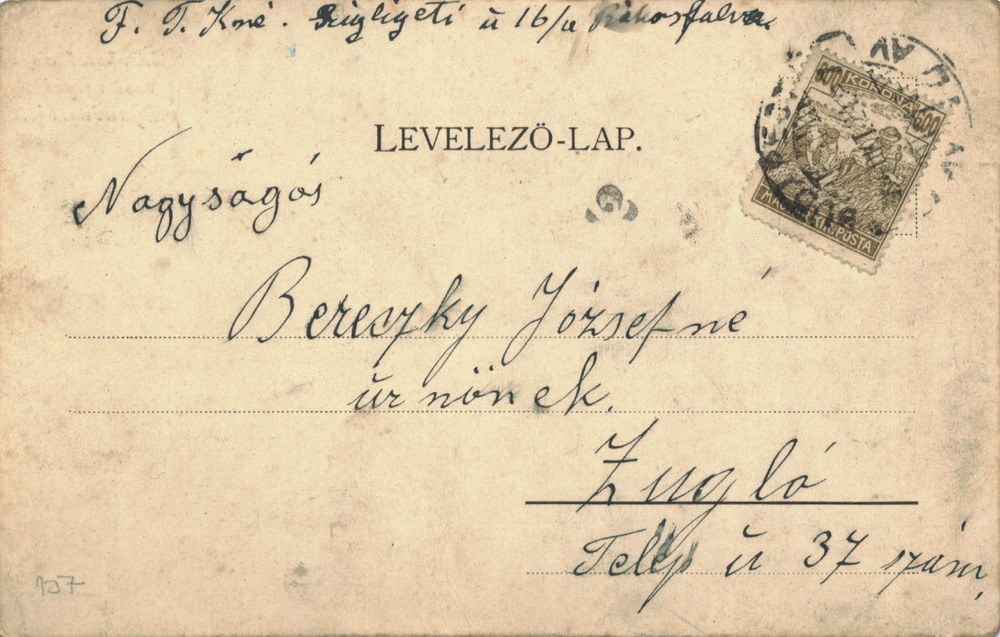 F. T. Kné. Szigligeti ú 16/a Rákosfalva
LEVELEZŐ-LAP.
600 KORONA 600
MAGYAR KIR. POSTA
Nagyságós
Bereczky Józsefné
úrnőnek.
Zugló
Telep ú 37 szám,
107